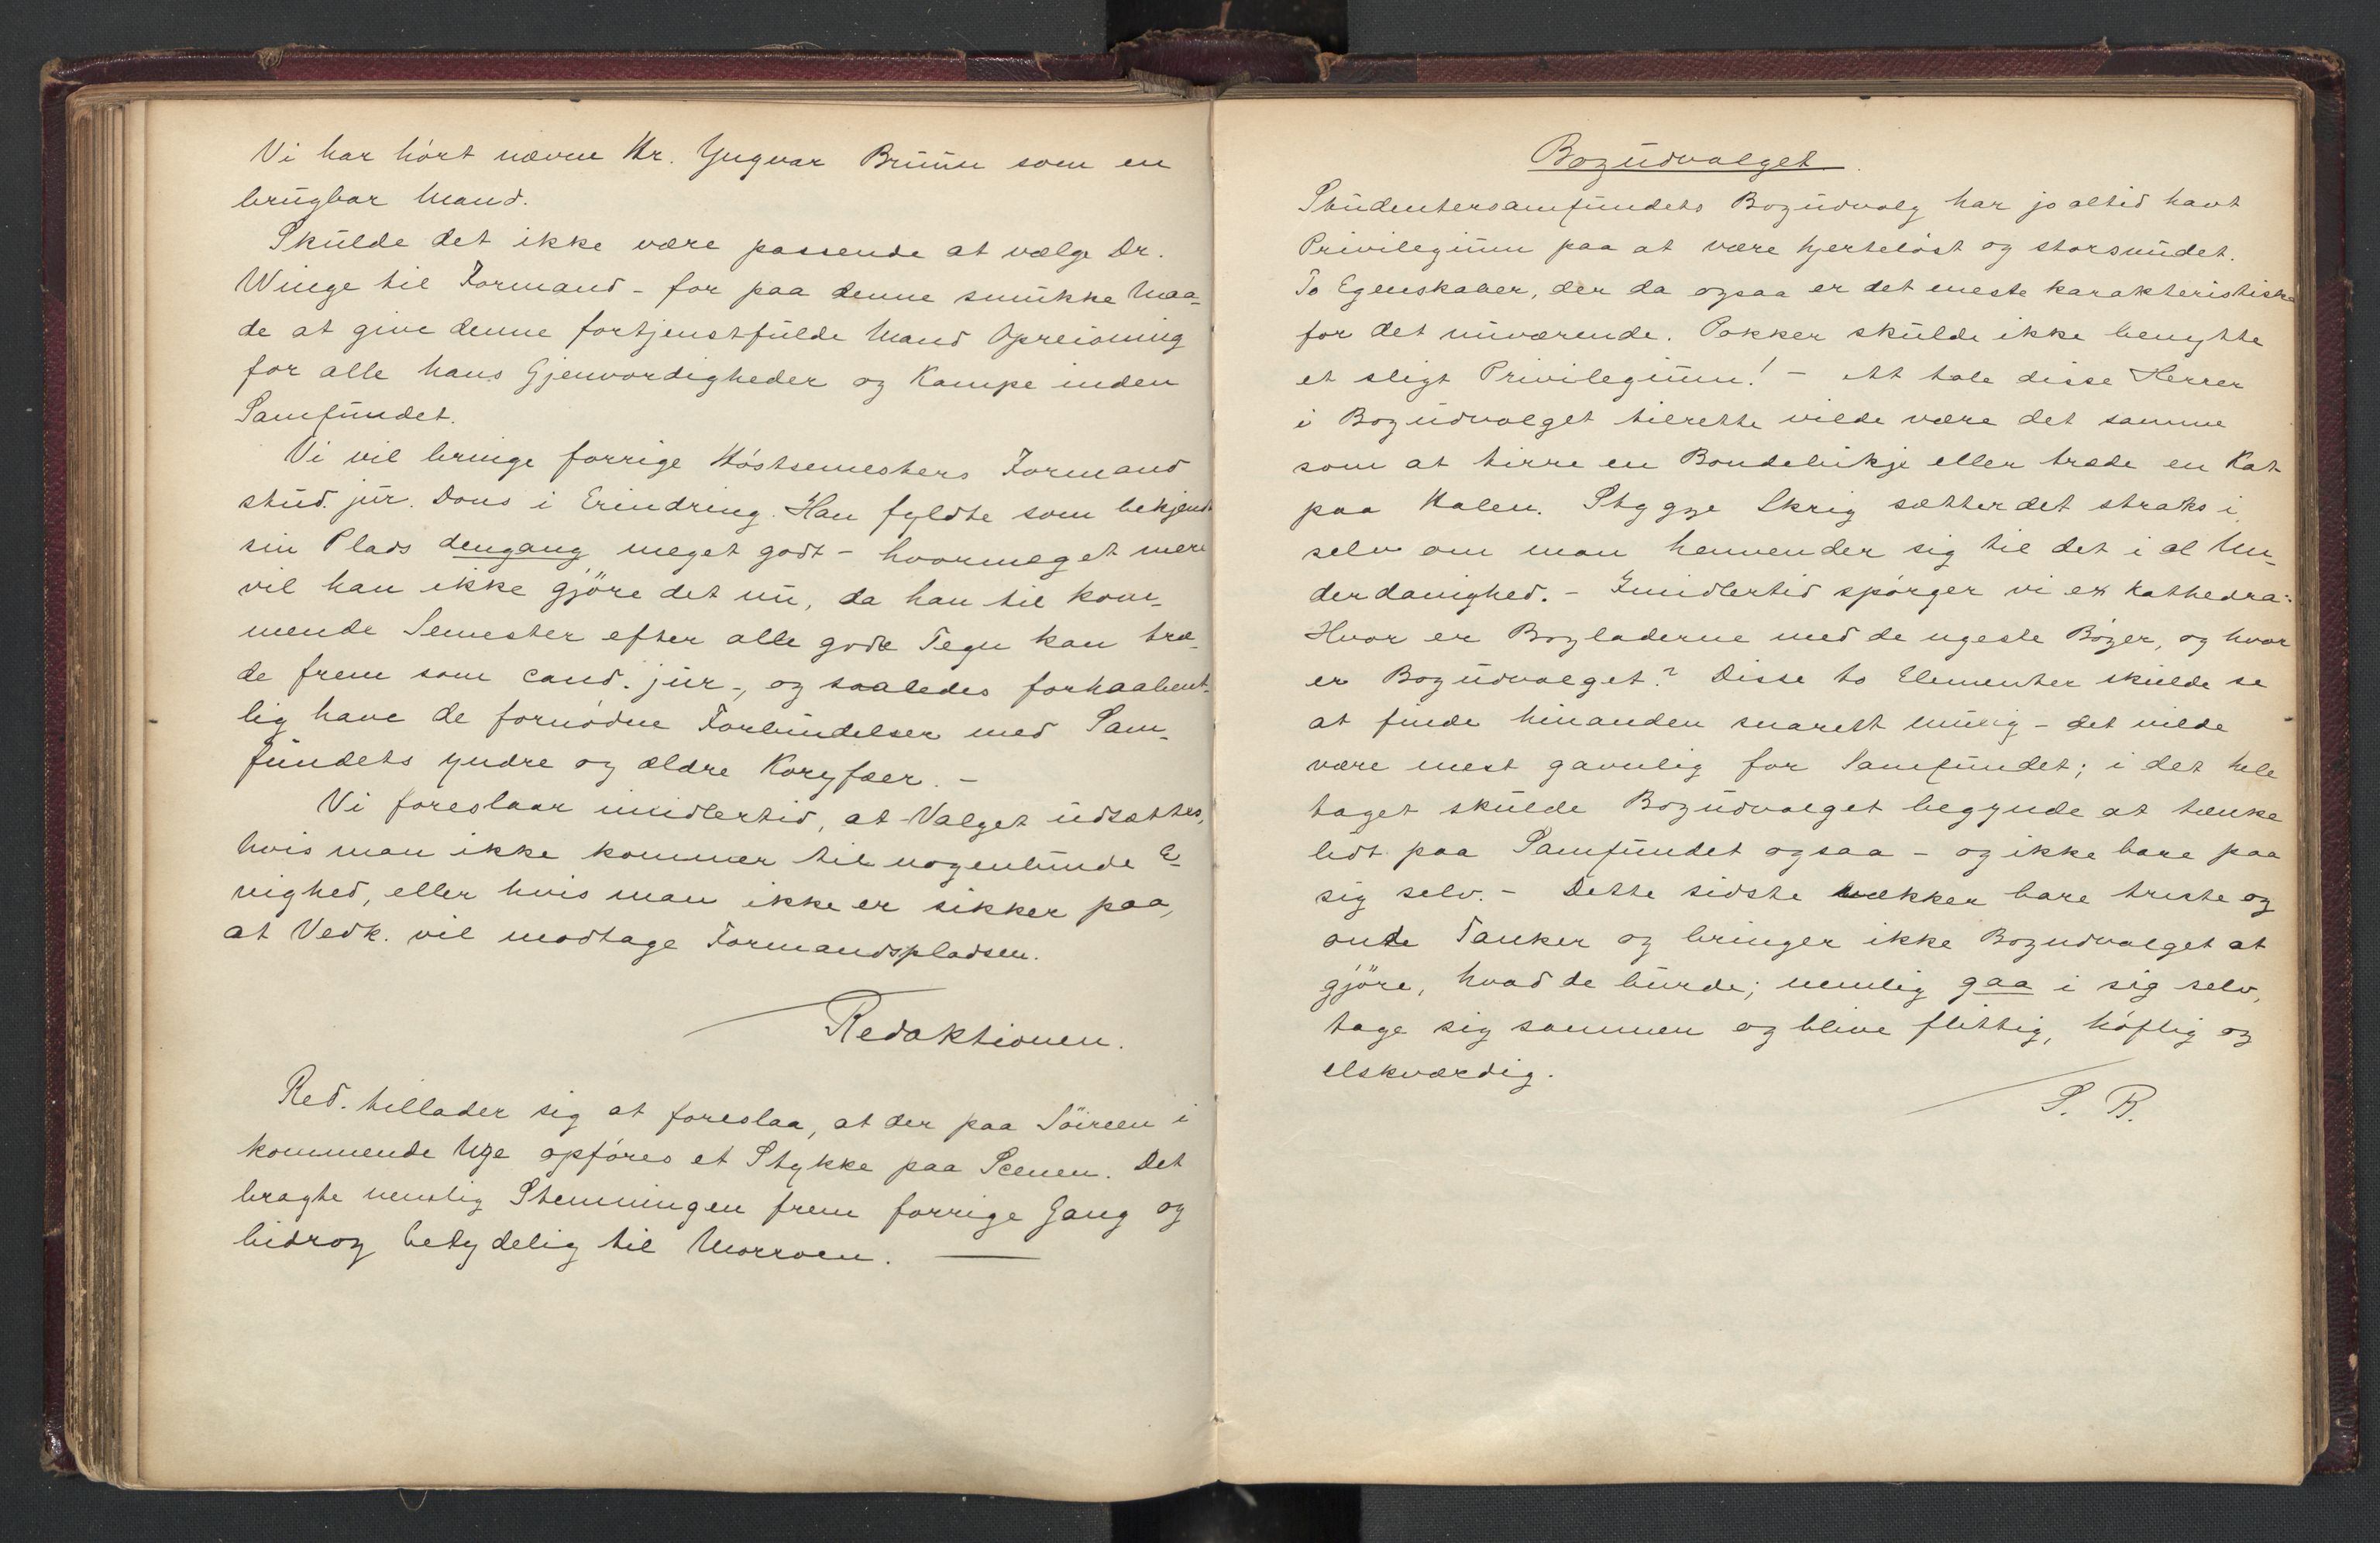 Vi har hórt nævne Hr. Yngvar Brúún som en
brúgbar Mand.
Skúlde det ikke være passende at vælge Dr.
Winge til Formand - for paa denne smúkke Maa-
de at give denne fortjenstfúlde Mand Opreisning
for alle hans Gjenvordigheder og Kampe inden
Samfúndet.
Vi vil bringe forrige Hóstsemesters Formand
stúd. júr. Dons i Erindring. Han fyldte som bekjendt
sin Plads dengang meget godt - hvormeget mere
vil han ikke gjöre det nú, da han til kom-
mende Semester efter alle gode Tegn kan træ-
de frem som cand. júr., og saaledes forhaabent-
lig have de fornódne Forbindelser med Sam-
fúndets yndre og ældre Koryfæer. -
Vi foreslaar imidlertid, at Valget údsættes,
hvis man ikke kommer til nogenlúnde E-
nighed, eller hvis man ikke er sikker paa,
at Vedk. vil modtage Formandspladsen.
Redaktionen.
Red. tillader sig at foreslaa, at der paa Söireen i
kommende Uge opfóres et Stykke paa Scenen. Det
bragte nemlig Stemningen frem forrige Gang og
bidrog betydelig til Morroen. -
Bogúdvalget.
Stúdentersamfúndets Bogúdvalg har jo altid havt
Privilegiúm paa at være hjertelóst og storsnúdet.
To Egenskaber, der da ogsaa er det meste karakteristiske
for det núværende. Pokker skúlde ikke benytte
et sligt Privilegiúm! - At tale disse Herrer
i Bogúdvalget tilrette vilde være det samme
som at tirre en Bondebikje eller træde en Kat
paa Halen. Stygge Skrig sætter det straks i
selv om man henvender sig til det i al Un-
derdanighed. - Imidlertid spórger vi ex kathedra:
Hvor er Bogladerne med de ugeste Bóger, og hvor
er Bogúdvalget? Disse to Elementer skúlde se
at finde hinanden snarest múlig - det vilde
være mest gavnlig for Samfúndet; i det hele
taget skúlde Bogúdvalget begynde at tænke
lidt paa Samfúndet ogsaa - og ikke bare paa
sig selv. - Dette sidste vækker bare triste og
onde Tanker og bringer ikke Bogudvalget at
gjöre, hvad de búrde; nemlig gaa i sig selv,
tage sig sammen og blive flittig, hóflig og
elskværdig.
S. B.